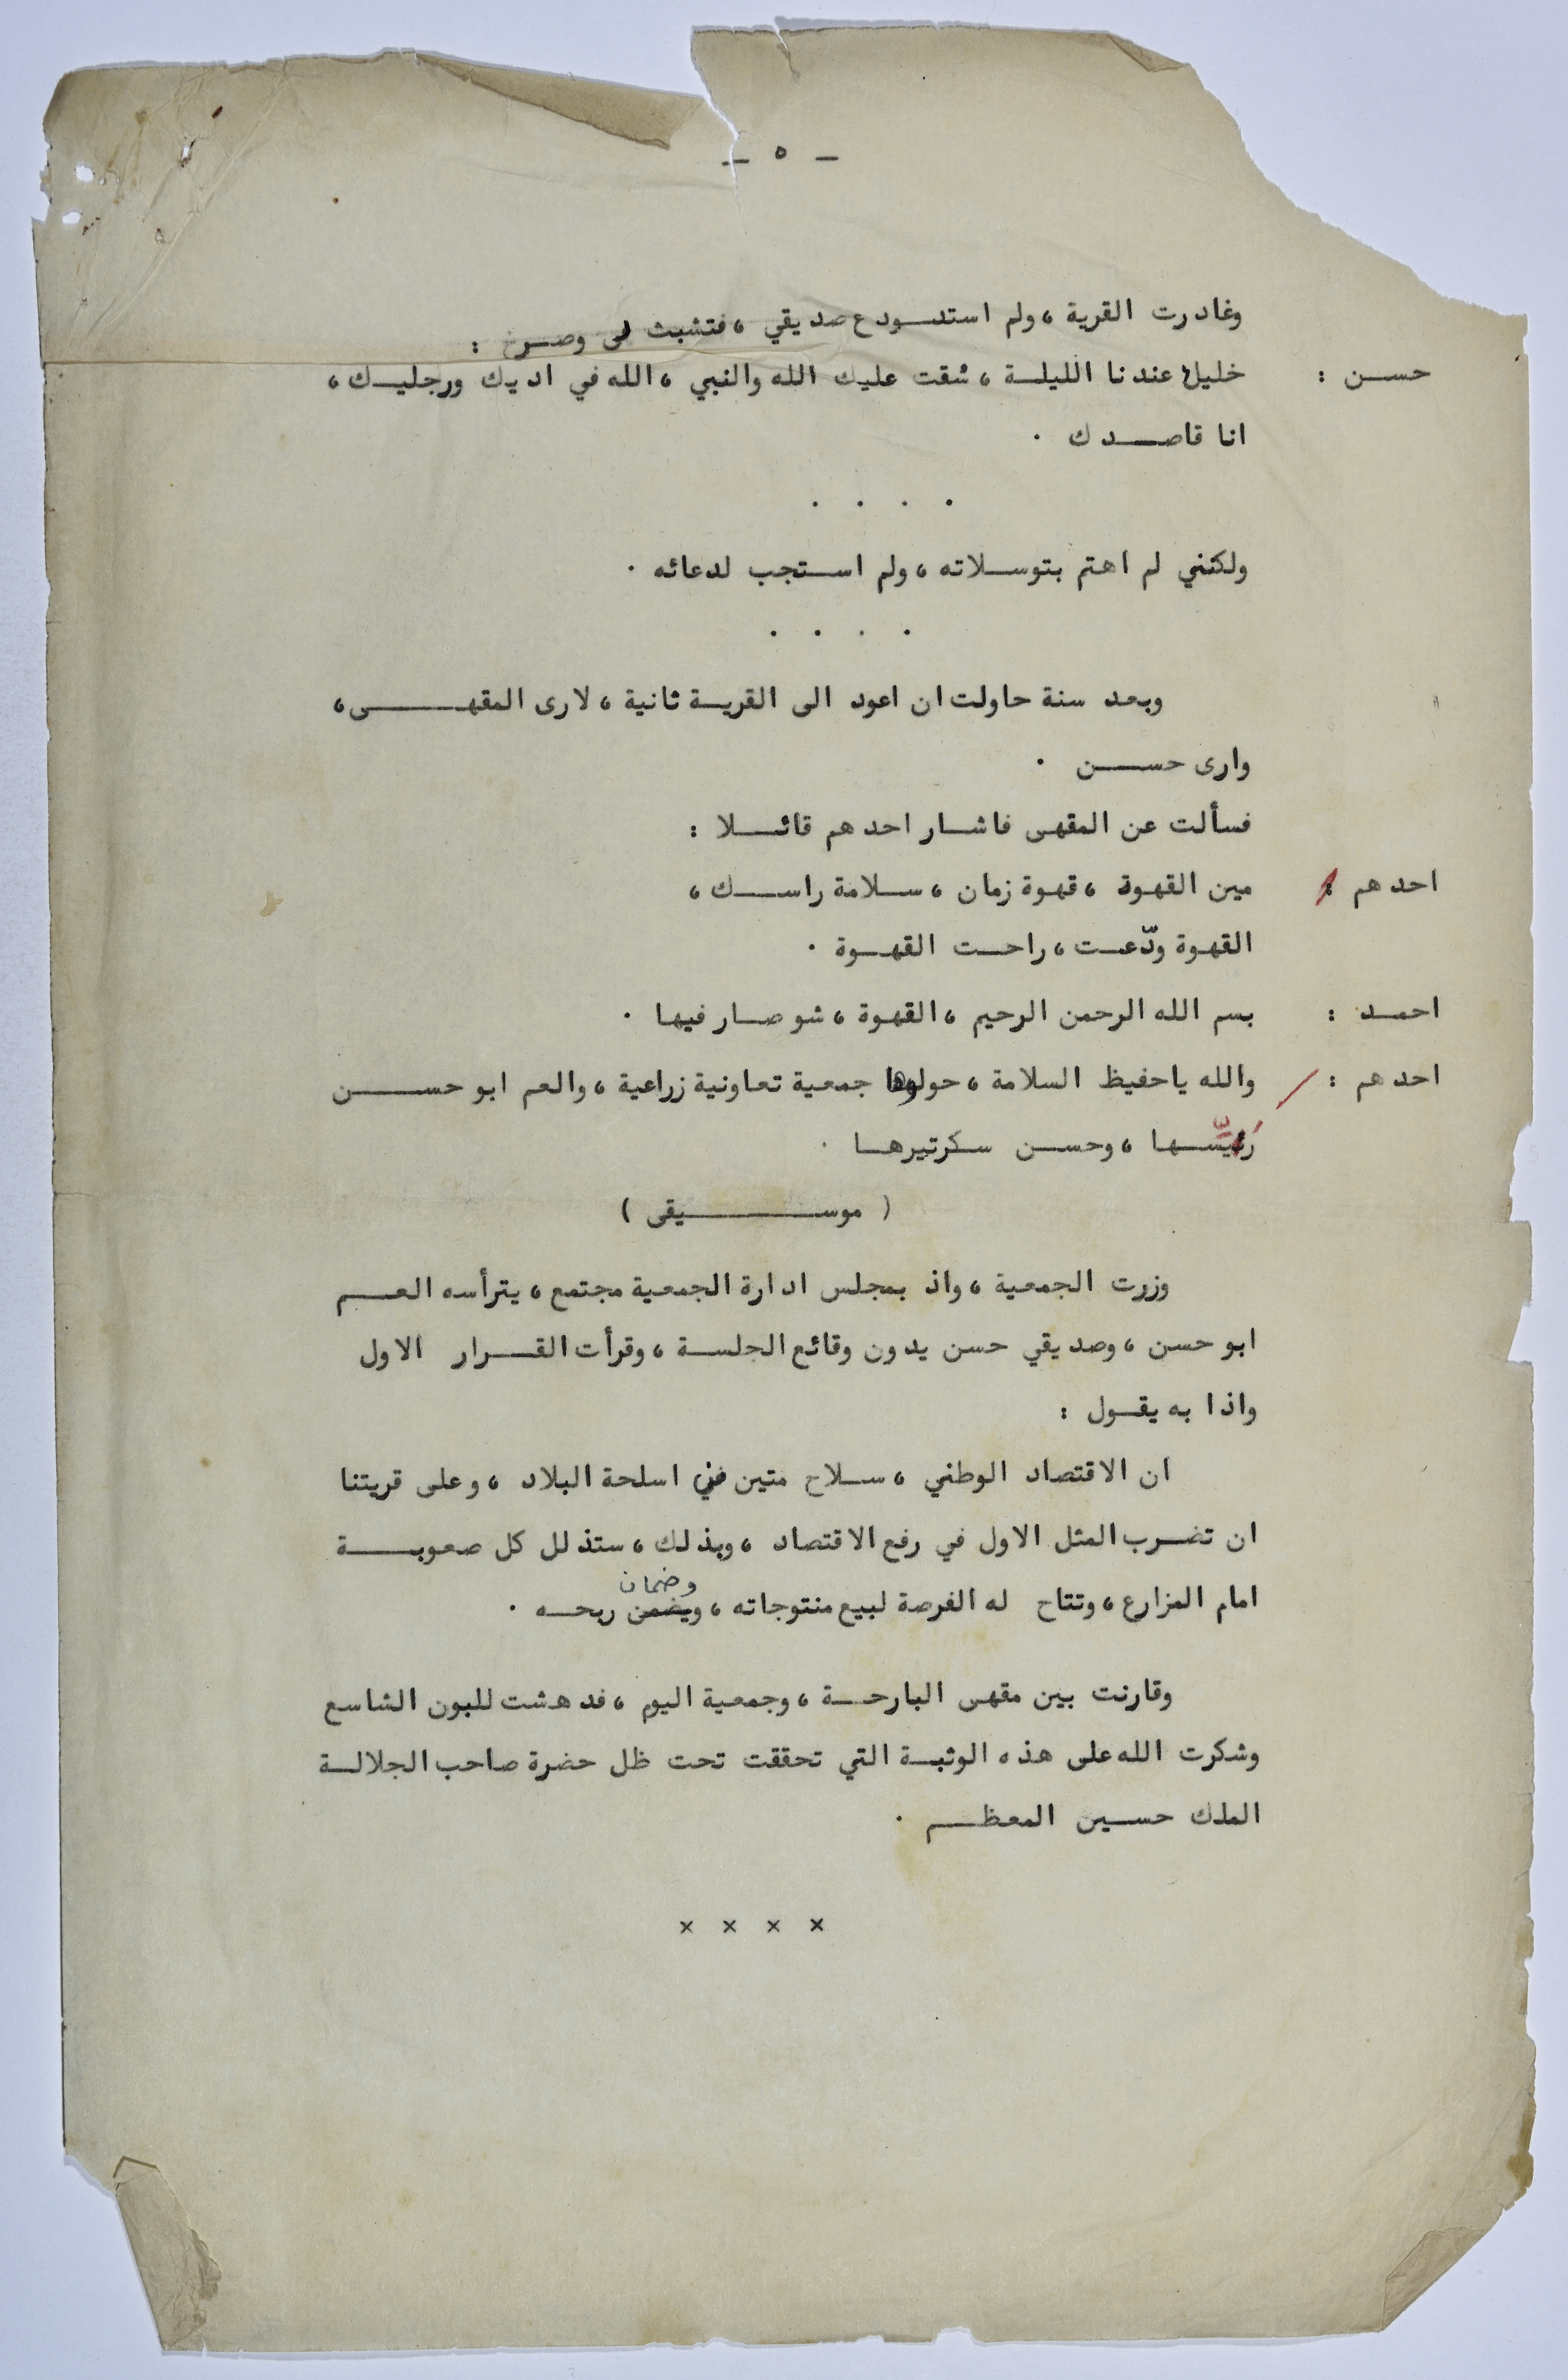 - ٥ -
وغادرت القرية ، ولم استودع صديقي ، فتشبث لي وصرخ :
حسن : خليك عندنا الليلة ، شقت عليك الله والنبي ، الله في اديك ورجليك ،
انا قاصدك .
. . . .
ولكنني لم اهتم بتوسلاته ، ولم استجب لدعائه .
. . . .
وبعد سنة حاولت ان اعود الى القرية ثانية ، لارى المقهى ،
وارى حسن .
فسألت عن المقهى فاشار احدهم قائلا :
احدهم : مين القهوة ، قهوة زمان ، سلامة راسك ،
القهوة ودّعت ، راحت القهوة .
احمد : بسم الله الرحمن الرحيم ، القهوة ، شو صار فيها .
احدهم : والله ياحفيظ السلامة ، حولوها جمعية تعاونية زراعية ، والعم ابو حسن
رَيّسها ، وحسن سكرتيرها .
( موسيقى )
وزرت الجمعية ، واذ بمجلس ادارة الجمعية مجتمع ، يترأسه العم
ابو حسن ، وصديقي حسن يدون وقائع الجلسة ، وقرأت القرار الاول
واذا به يقول :
ان الاقتصاد الوطني ، سلاح متين في اسلحة البلاد ، وعلى قريتنا
ان تضرب المثل الاول في رفع الاقتصاد ، وبذلك ، ستذلل كل صعوبة
وضمان
امام المزارع ، وتتاح له الفرصة لبيع منتوجاته ، ويضمن ربحه .
وقارنت بين مقهى البارحة ، وجمعية اليوم ، فدهشت للبون الشاسع
وشكرت الله على هذه الوثبة التي تحققت تحت ظل حضرة صاحب الجلالة
الملك حسين المعظم .
× × × ×